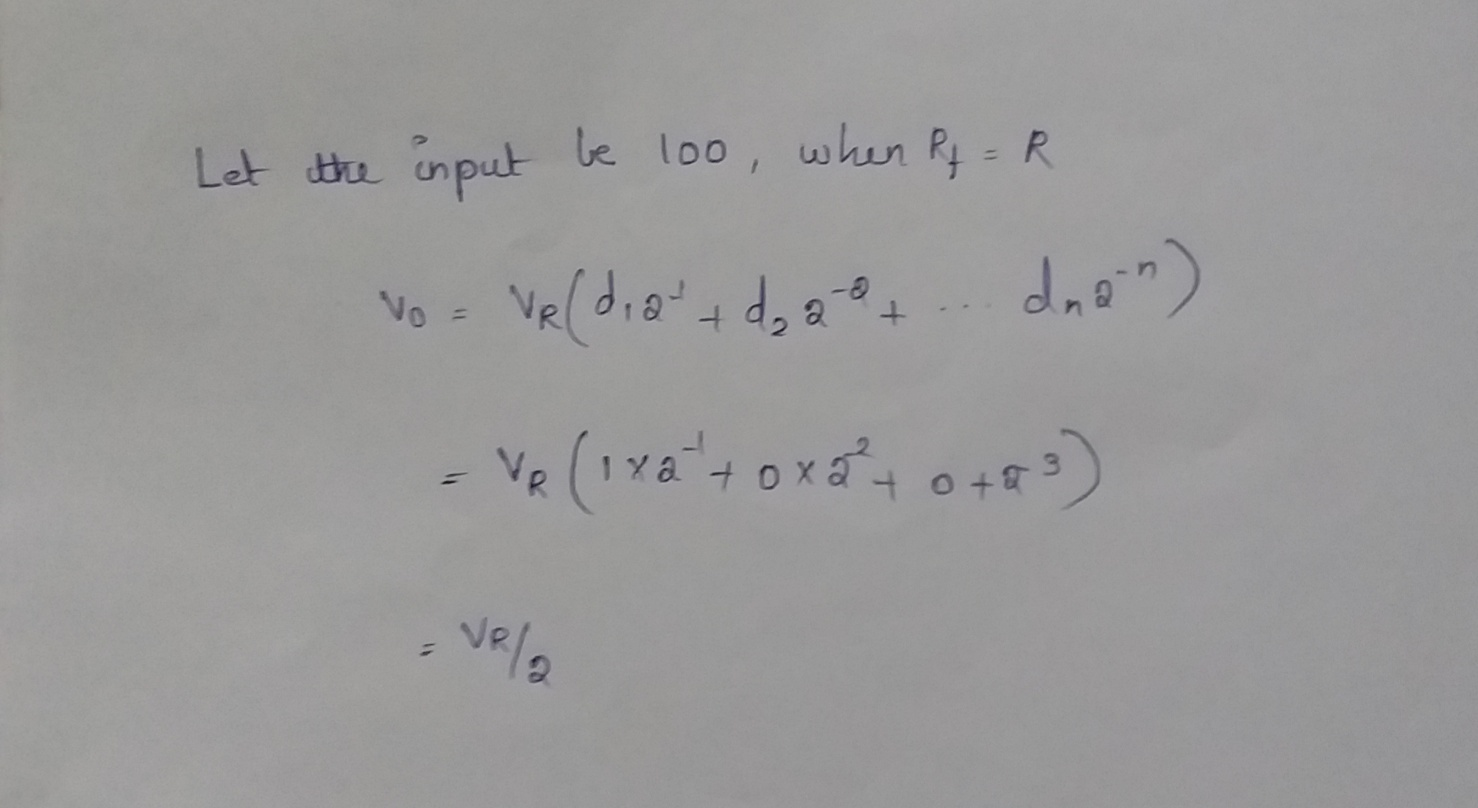 Let the input be 100, when Rf = R
V0 = VR(d1 2^-1 + d2 2^-2 + ... dn 2^-n)
= VR(1×2^-1 + 0×2^2 + 0+2^3)
= VR/2